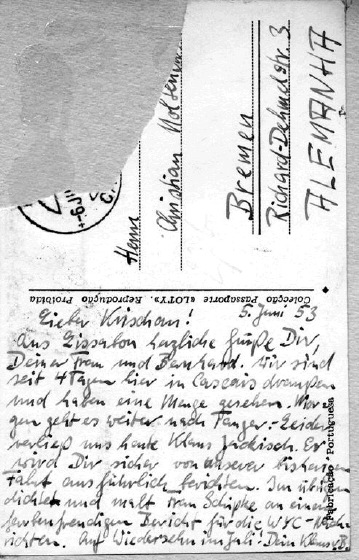 Herrn
Christian
Bremen
Richard-Dehmelstr. 3
ALEMANHA
Colecção Passaporte «LOTY». Reprodução Proibida
Fabricação Portuguesa
5. Juni 53
Lieber Krischan!
Aus Lissabon herzliche Grüße Dir,
Deiner Frau und Bernhard! Wir sind
seit 4 Tagen hier in Cascais draußen
und haben eine Menge gesehen. Mor-
gen geht es weiter nach Tanger. Leider
verließ uns heute Klaus Er
wird Dir sicher von unserer bisher.
Fahrt ausführlich berichten. Im übrigen
dichtet und malt Schipke an einem
farbenfreudigen Bericht für die WYC-Nach-
richten. Auf Wiedersehn im Juli. Dein Klaus